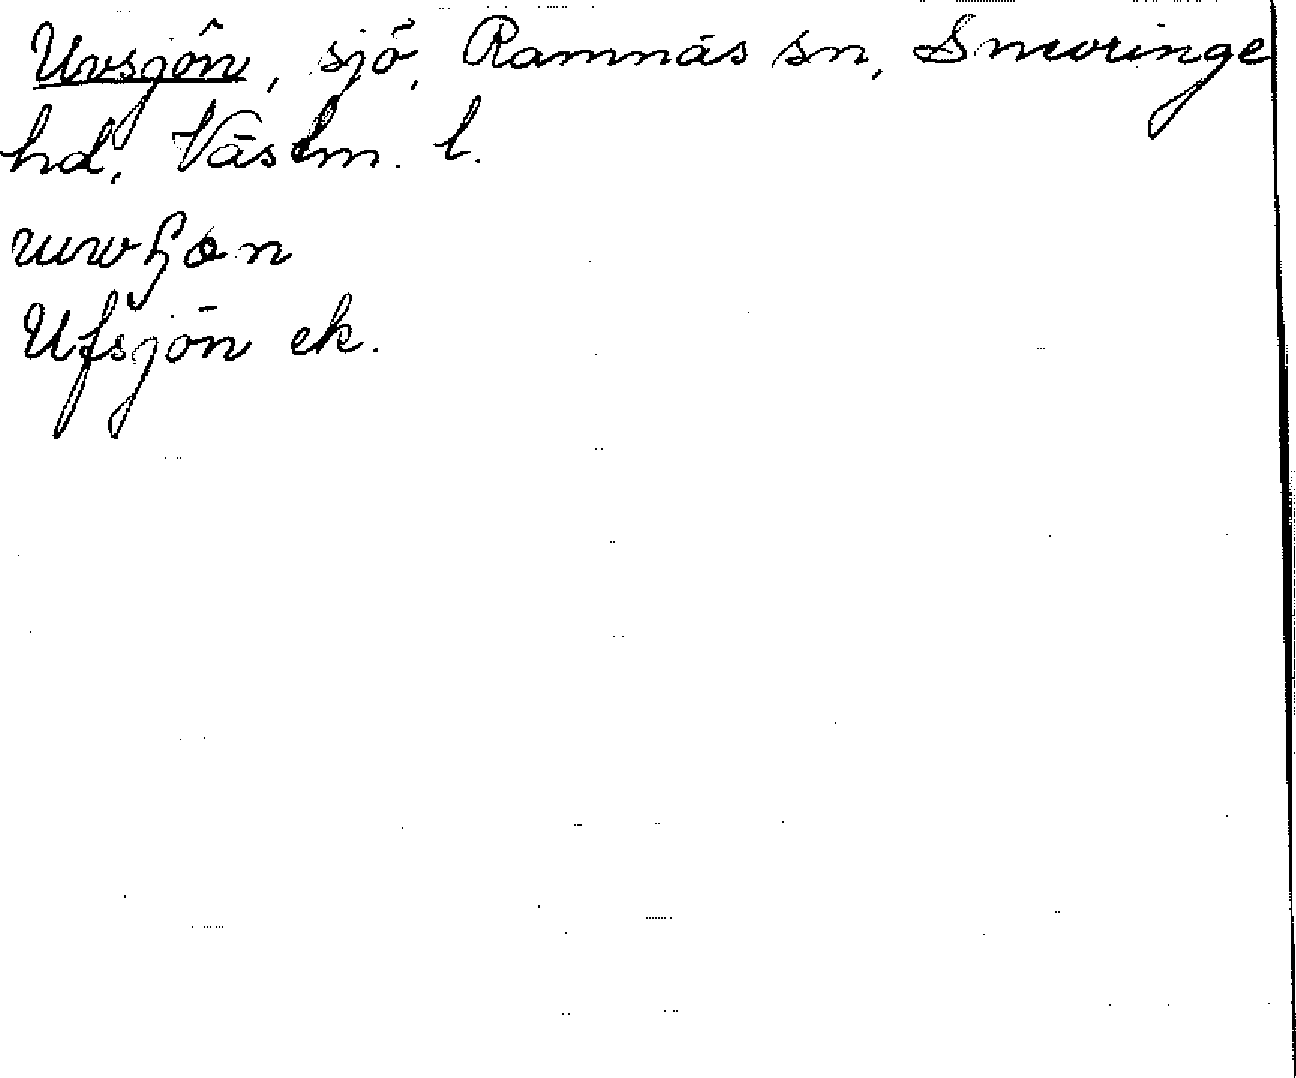 Uvsjön, sjö, Ramnäs sn, Snevringe
hd, Västm. l.
Ufsjön ek.